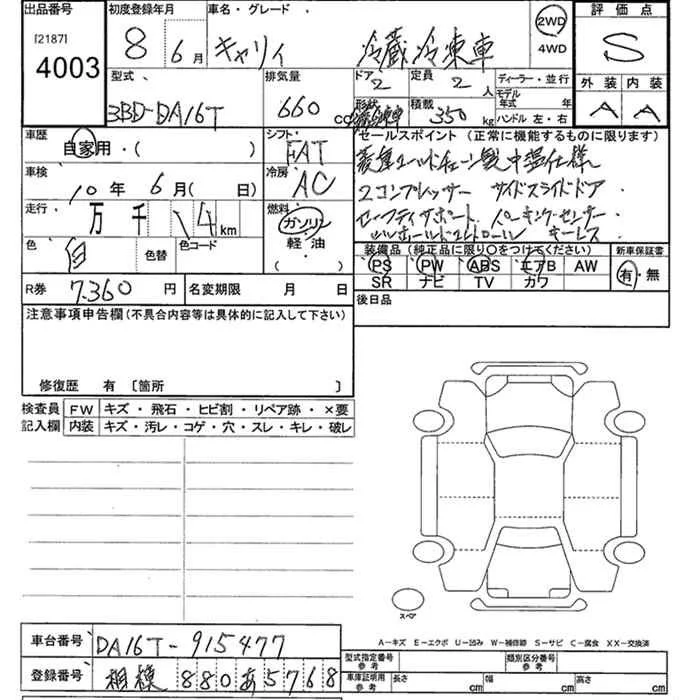 出品番号 初度登録年月 車名・グレード 評価点
[2187] 4003
8 6月 キャリィ 冷蔵冷凍車 2WD 4WD S
外装 内装
A A
型式 3BD-DA16T
排気量 660 cc
ドア 2 定員 2 人
形状 冷凍車 積載 350 kg
ディーラー・並行
モデル年式 年式
ハンドル 左・右
車歴 自家用・( )
シフト FAT
セールスポイント (正常に機能するものに限ります)
菱重コールドチェーン製中温仕様
2コンプレッサー サイドスライドドア
セーフティサポート パーキングセンサー
ヒルホールドコントロール キーレス
車検 10年 6月( 日)
冷房 AC
走行 万 千 14 km
燃料 ガソリン 軽油・ ( )
色 白 色替 色コード
装備品 (純正品に限り○をつけてください) 新車保証書
PS PW ABS エアB AW 有・無
SR ナビ TV カワ
R券 7,360 円 名変期限 月 日
後日品
注意事項申告欄 (不具合内容等は具体的に記入して下さい)
修復歴 有 [箇所 ]
検査員 FW キズ・飛石・ヒビ割・リペア跡・×要
記入欄 内装 キズ・汚レ・コゲ・穴・スレ・キレ・破レ
スペア
A-キズ E-エクボ U-凹み W-補修跡 S-サビ C-腐食 XX-交換済
車台番号 DA16T-915477
型式指定番号 参考 類別区分番号 参考
登録番号 相模 880 あ 5768
車庫証明用 参考 長さ cm 幅 cm 高さ cm